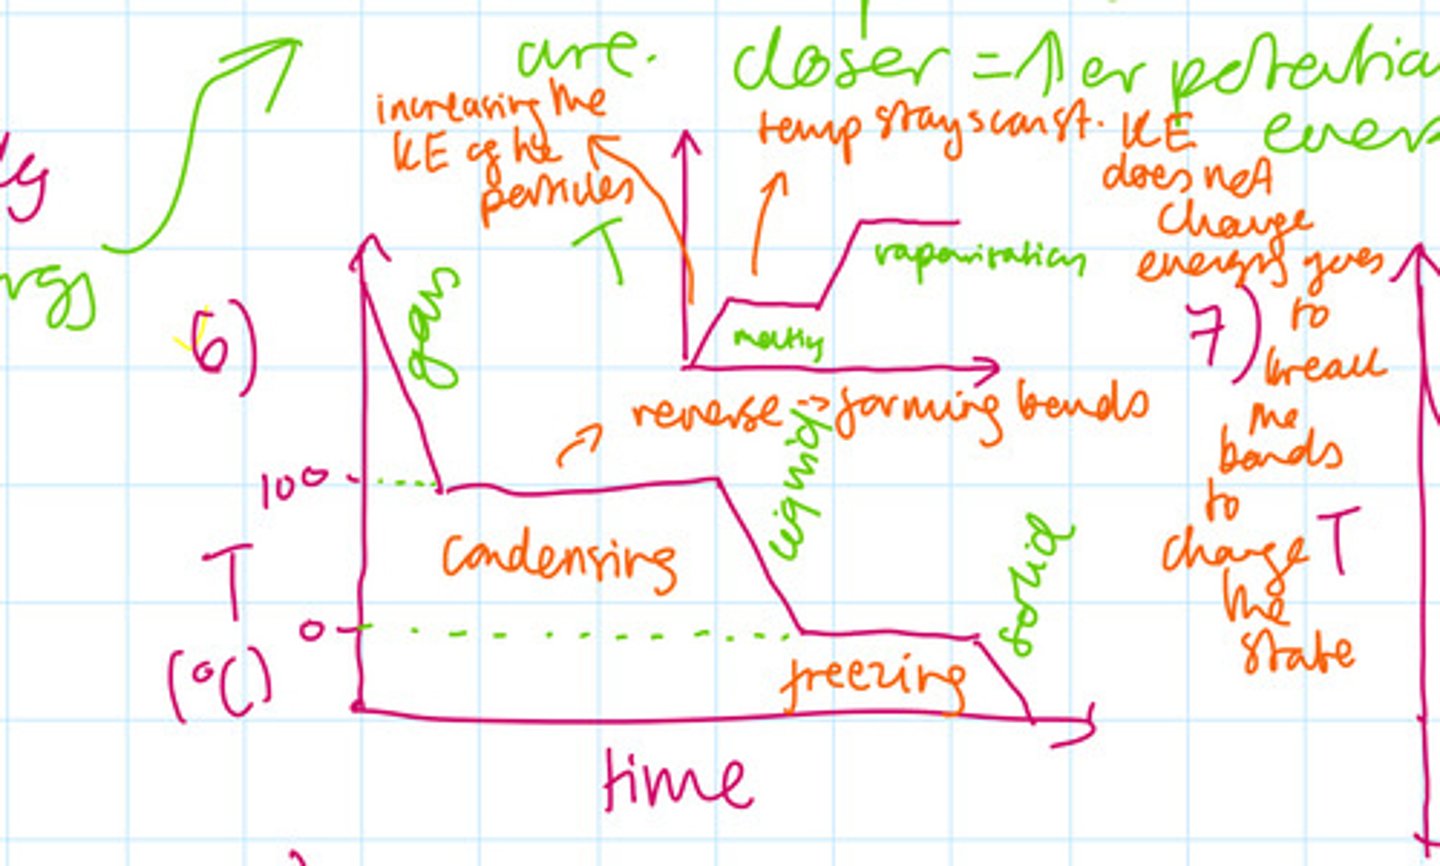 are.
closer = ↑er potentia
ener
increasing the
KE of the
particles
temp stays const. KE
does not
change
energy goes
to
break
the
bonds
to
change
the
state
T
vaporisation
melting
reverse -> forming bonds
6)
gas
liquid
solid
100
condensing
T
(°C)
0
freezing
time
7)
T
rgy